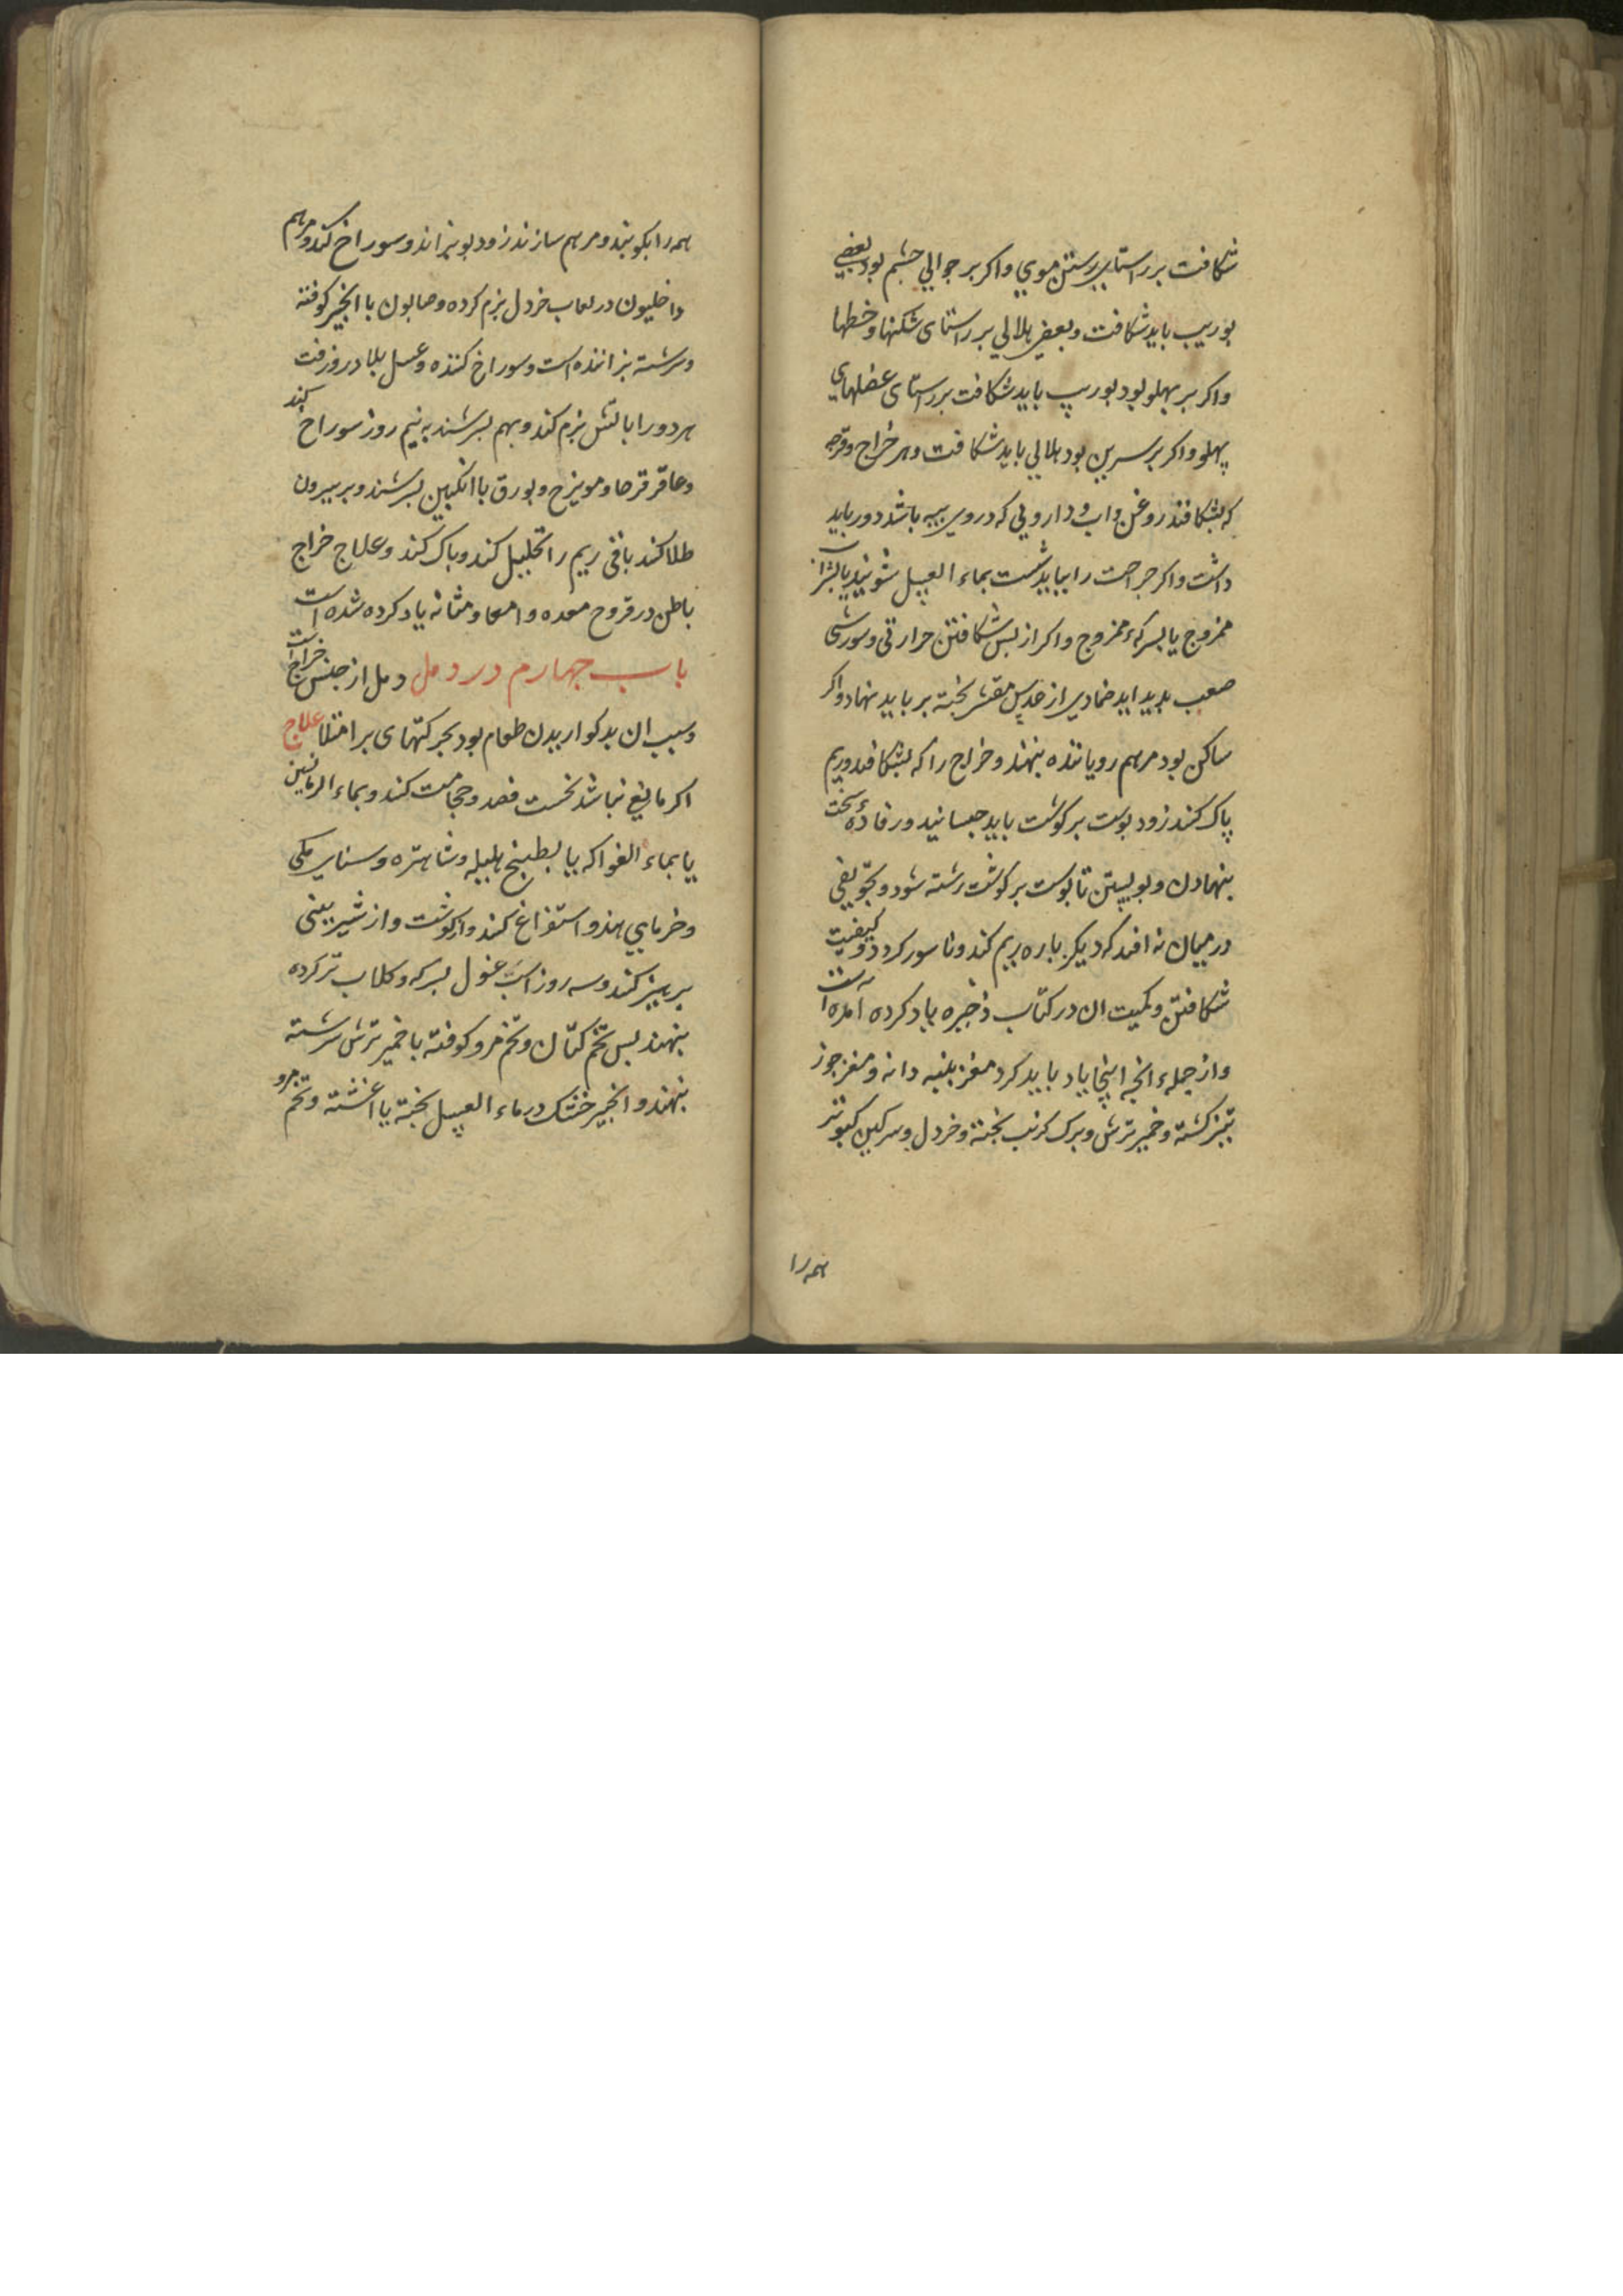 شکافت بر راستای رستن موی و اکر بر حوالی چشم بود بعضی
بوریب باید شکافت و بعضی هلالی بر راستای شکنها و خطها
و اکر بر پهلو بود بوریب باید شکافت بر راستای عضلهای
پهلو و اکر بر سرین بود هلالی باید شکافت و هر خراج و قرحه
که بشکافند روغن و اب و دارویی که در وی پیه باشد دور باید
داشت و اکر جراحت را بباید شست بماء العسل شویند یا بشراب
ممزوج یا بسرکهء ممزوج و اکر از پس شکافتن حرارتی و سورشی
صعب بدید اید ضمادی از عدس مقشر پخته بر باید نهاد و اکر
ساکن بود مرهم رویاننده بنهند و خراج را که بشکافند و ریم
پاک کنند زود پوست بر کوشت باید جسبانید و رفادهٔ سخت
بنهادن و ببستن تا پوست بر کوشت رسته شود و تجویفی
در میان نه افتد که دیکر باره ریم کند و ناسور کردد و کیفیت
شکافتن و کمیت ان در کتاب ذخیره یاد کرده آمده است
و از جمله انجه اینجا یاد باید کرد مغز پنبه دانه و مغز جوز
تیز کشته و خمیر ترش و برک کرنب پخته و خردل و سرکین کبوتر
همه را
همه را بکوبند و مرهم سازند زود بپزاند و سوراخ کند و مرهم
داخلیون در لعاب خردل نرم کرده و صابون با انجیر کوفته
و سرشته پزاننده است و سوراخ کننده و عسل بلادر و زفت
هر دو را باتش نرم کند و بهم بسرشند به نیم روز سوراخ کند
و عاقرقرحا و مویزج و بورق با انکبین بسرشند و بر بیرون
طلا کند باقی ریم را تحلیل کند و پاک کند و علاج خراج
باطن در قروح معده و امعا و مثانه یاد کرده شده است
باب جهارم در دمل دمل از جنس خراج است
و سبب ان بدکواریدن طعام بود بحرکتهای بر امتلا علاج
اکر مانعی نباشد نخست فصد و حجامت کند و بماء الرمانین
یا بماء الفواکه یا بطبیخ هلیله و شاهتره و سنای مکی
و خرمای هندو استفراغ کند و از کوشت و از شیرینی
پرهیز کند و سه روز اسبغول بسرکه و کلاب تر کرده
بنهند پس تخم کتان و تخم مرو کوفته با خمیر ترش سرشته
بنهند و انجیر خشک در ماء العسل پخته یا اغشته و تخم مرو